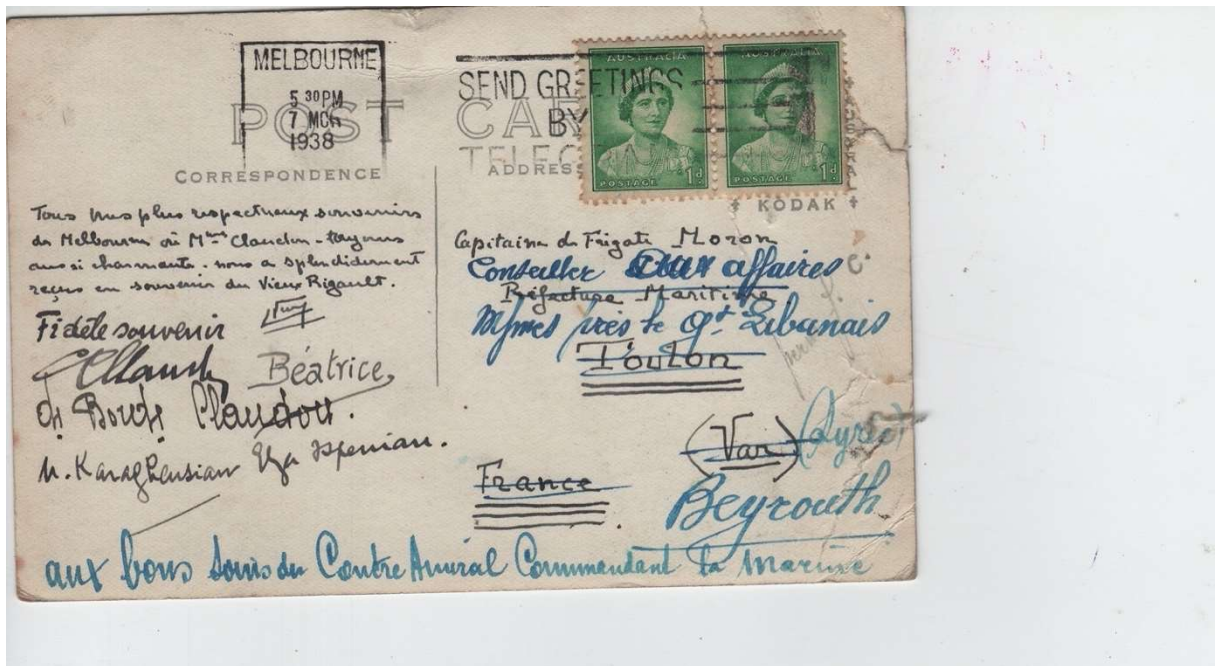 MELBOURNE
5 30 PM
7 MCH
1938
SEND GREETINGS
BY
POST CARD
CORRESPONDENCE
ADDRESS
AUSTRALIA
POSTAGE 1d
AUSTRALIA
POSTAGE 1d
KODAK
AUSTRAL
Tous nos plus respectueux souvenirs
de Melbourne où Mme Claudon - toujours
aussi charmante - nous a splendidement
reçus en souvenir du Vieux Rigault.
Fidèle souvenir
Béatrice
Claudon.
N. Karagheusian
Capitaine de Frégate Moron
Conseiller aux affaires
Préfecture Maritime
près le Gt Libanais
Toulon
(Var) (Syrie)
France
Beyrouth
aux bons soins du Contre Amiral Commandant la Marine